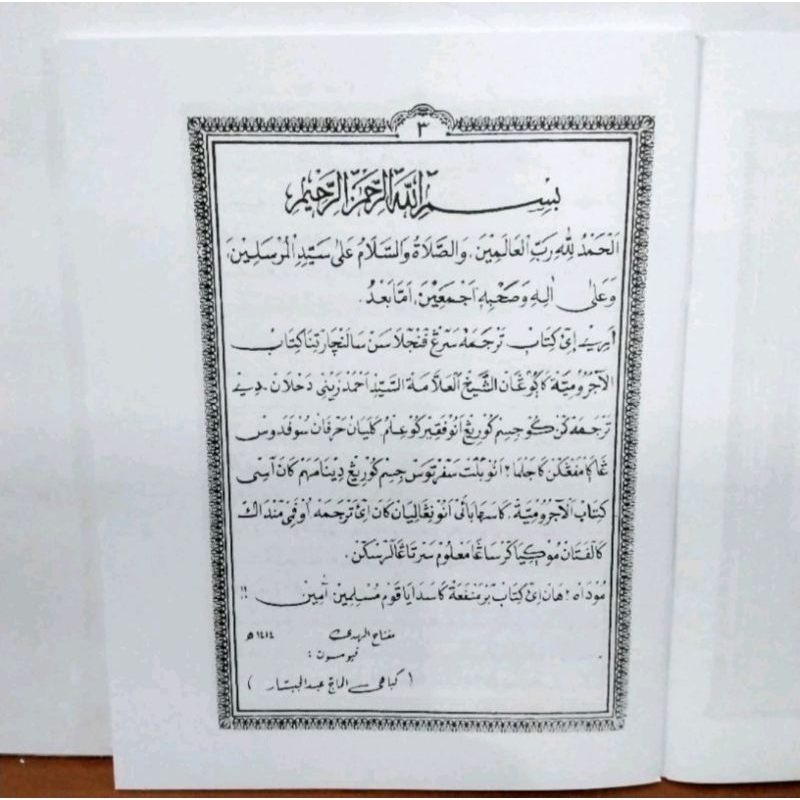 ٣
بِسْمِ اللهِ الرَّحْمٰنِ الرَّحِيْمِ
اَلْحَمْدُ لِلّٰهِ رَبِّ الْعَالَمِيْنَ، وَالصَّلَاةُ وَالسَّلَامُ عَلٰى سَيِّدِ الْمُرْسَلِيْنَ،
وَعَلٰى اٰلِهِ وَصَحْبِهِ اَجْمَعِيْنَ، اَمَّا بَعْدُ.
اَرِيْ اِئ كِتَابْ تَرْجَمَهْ سَرڠْ فَنْجَلَاسَنْ سَالَنْچَارْ تِنَا كِتَابْ
الْاٰجُرُوْمِيَّةْ كَاڮُوڠَانْ الشَّيْخْ الْعَلَّامَةْ السَّيِّدْ اَحْمَدْ زَيْنِي دَحْلَانْ. دِيْ
تَرْجَمَهْ كَنْ كُوْ جِسِمْ كُوْرِيڠْ اَنُوْ فَقِيْرْ كُوْ عِلْمُ، كَلَيَانْ حَرْفَانْ سُوْفَدُوْسْ
ڠَاڮَامْفَڠْكَنْ كَاجَلْمَا٢ اَنُوْ بُلُتْ سَفَرْتُوْسْ جِسِمْ كُوْرِيڠْ دِيْنَا مَهَمْ كَانْ اَسِي
كِتَابْ الْاٰجُرُوْمِيَّةْ، كَاسَهَا بَائِي اَنُوْ نِيڠَالِيَانْ كَانْ اِئ تَرْجَمَهْ اُوْفَمِي مَنْدَاكْ
كَالَفَتَانْ مُوْڮِيَا كَرْسَا ڠَامَعْلُوْمْ سَرْتَا ڠَالَرَسْكَنْ.
مُوْدَاهْ٢هَانْ اِئ كِتَابْ بَرْمَنْفَعَةْ كَاسَدَايَا قَوْمْ مُسْلِمِيْنْ اٰمِيْنْ !!
مفتاح الهدى ١٤١٤ ه
فيوسون :
( كياهي الحاج عبد الجبار )